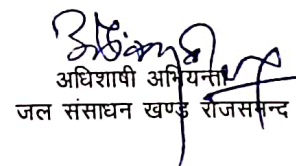 अधिशाषी अभियन्ता
जल संसाधन खण्ड राजसमन्द